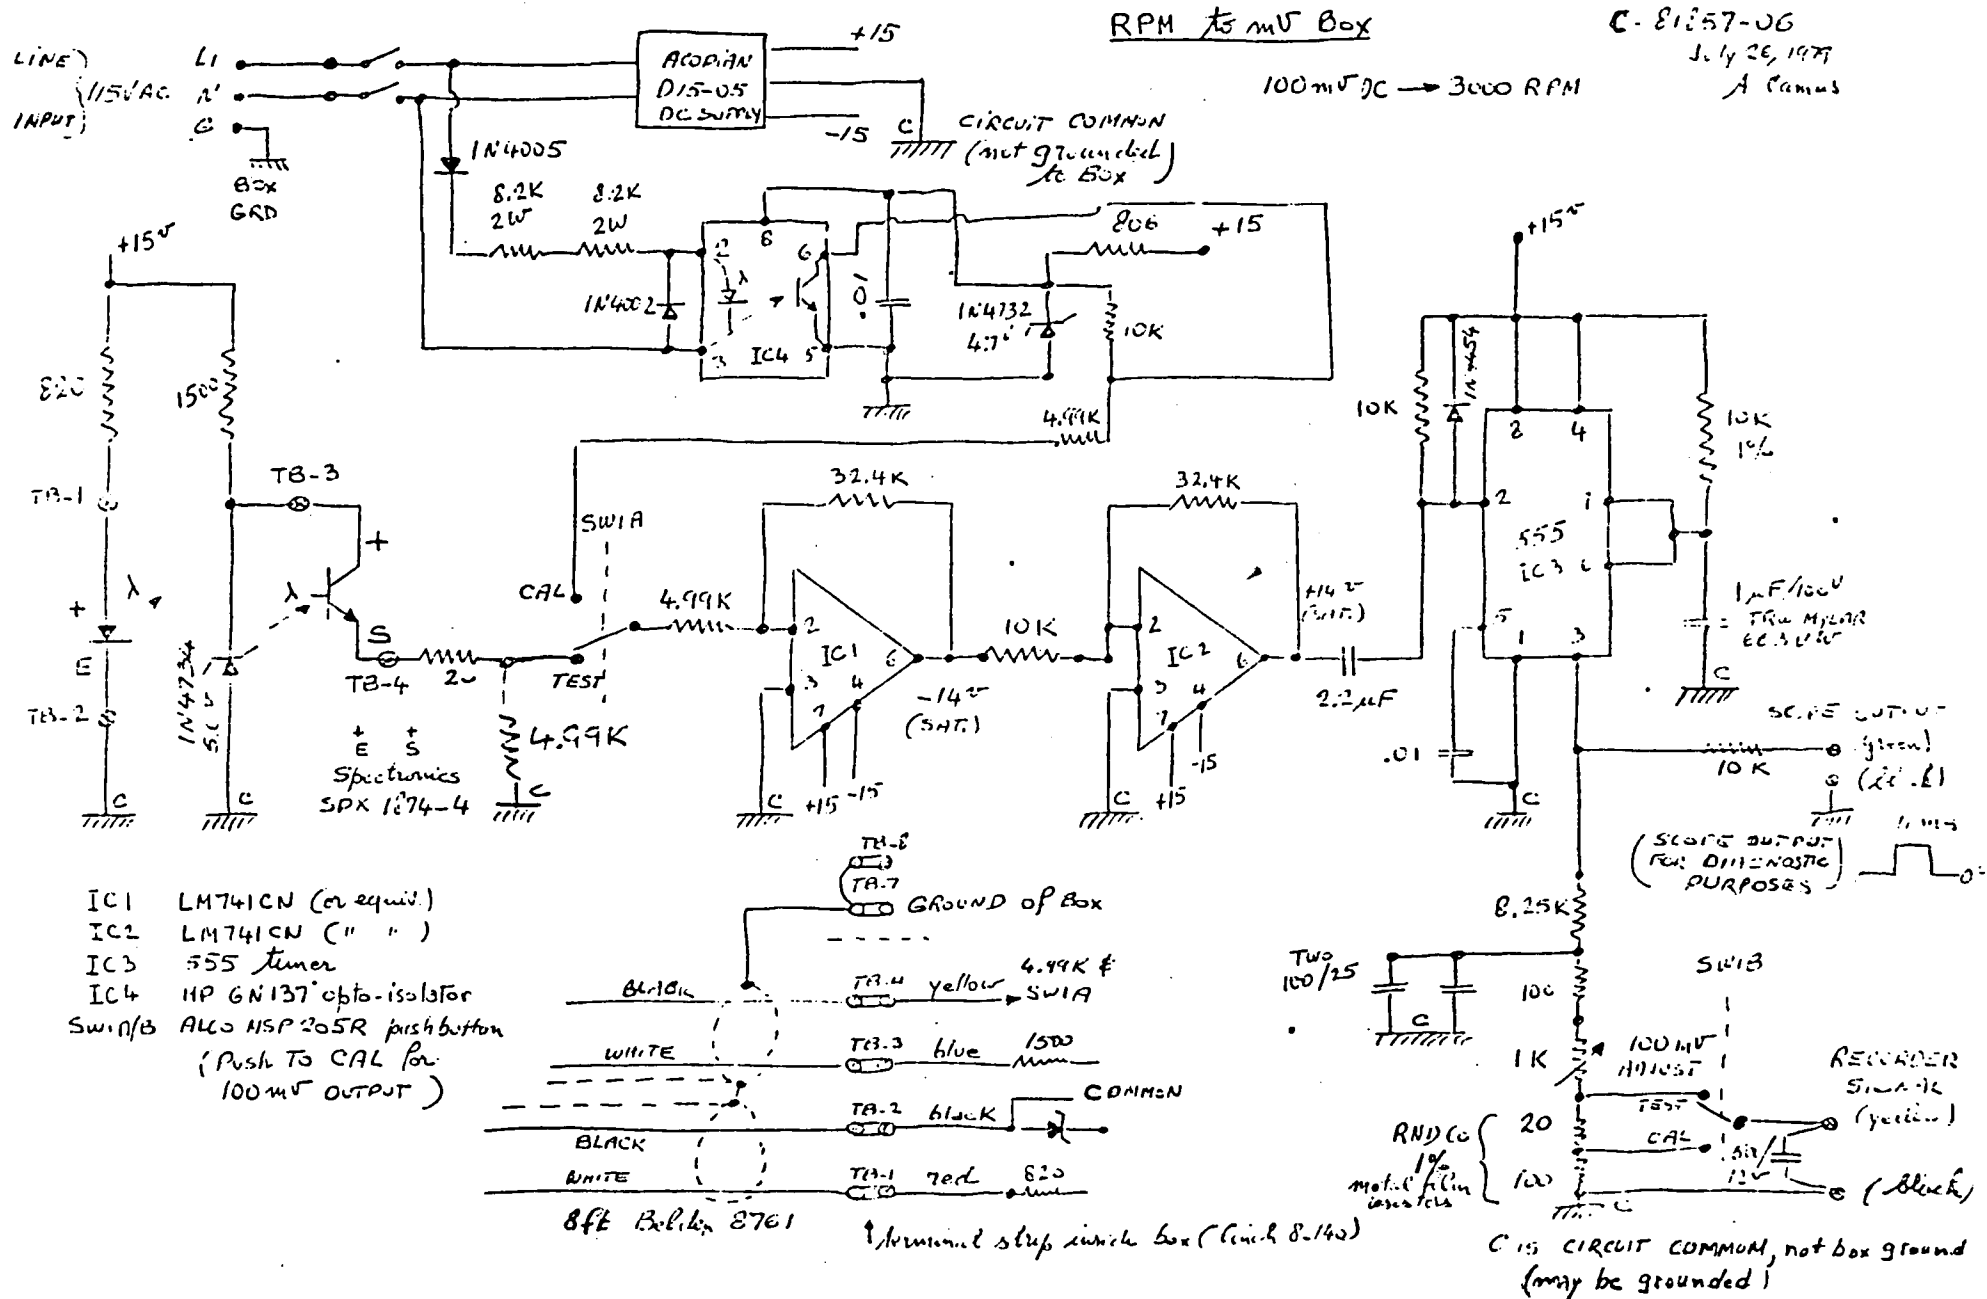 RPM to mV Box
July 26, 1979
A Camus
100mV DC → 3000 RPM
LINE
INPUT
115VAC
L1
N
G
BOX
GRD
ACOPIAN
D15-05
DC SUPPLY
+15
-15
C
CIRCUIT COMMON
(not grounded
to Box)
1N4005
8.2K
2W
8.2K
2W
1N4002
2
3
8
6
5
λ
IC4
.01
806
+15
1N4732
4.7V
10K
4.99K
+15V
820
1500
TB-1
TB-3
λ
+
E
TB-2
C
1N4734
C
λ
+
S
TB-4
20
+ +
E S
Spectronics
SPX 1874-4
4.99K
C
SW1A
CAL
TEST
4.99K
32.4K
2
3
IC1
6
4
7
C
+15
-15
-14V
(SAT.)
10K
32.4K
2
3
IC2
6
4
7
C
+15
-15
+14V
(SAT.)
2.2µF
+15V
10K
1N4454
8
4
2
555
IC3
5
1
3
10K
1%
1µF/100V
TRW MYLAR
C
.01
C
SCOPE OUTPUT
(green)
10K
(SCOPE OUTPUT
FOR DIAGNOSTIC
PURPOSES)
8.25K
TWO
100/25
C
100
1K
100 mV
ADJUST
SW1B
TEST
CAL
RECORDER
SIGNAL
(yellow)
(black)
20
100
1%
metal film
resistors
C
C is CIRCUIT COMMON, not box ground
(may be grounded)
IC1 LM741CN (or equiv.)
IC2 LM741CN (" ")
IC3 555 timer
IC4 HP 6N137 opto-isolator
SW1A/B ALCO MSP205R pushbutton
(Push TO CAL for
100mV OUTPUT)
TB-8
TB-7
GROUND of Box
BLACK
TB-4
yellow
4.99K &
SW1A
WHITE
TB-3
blue
1500
BLACK
TB-2
black
COMMON
WHITE
TB-1
red
820
8ft Belden 8761
↑ terminal strip inside box (Cinch 8-140)